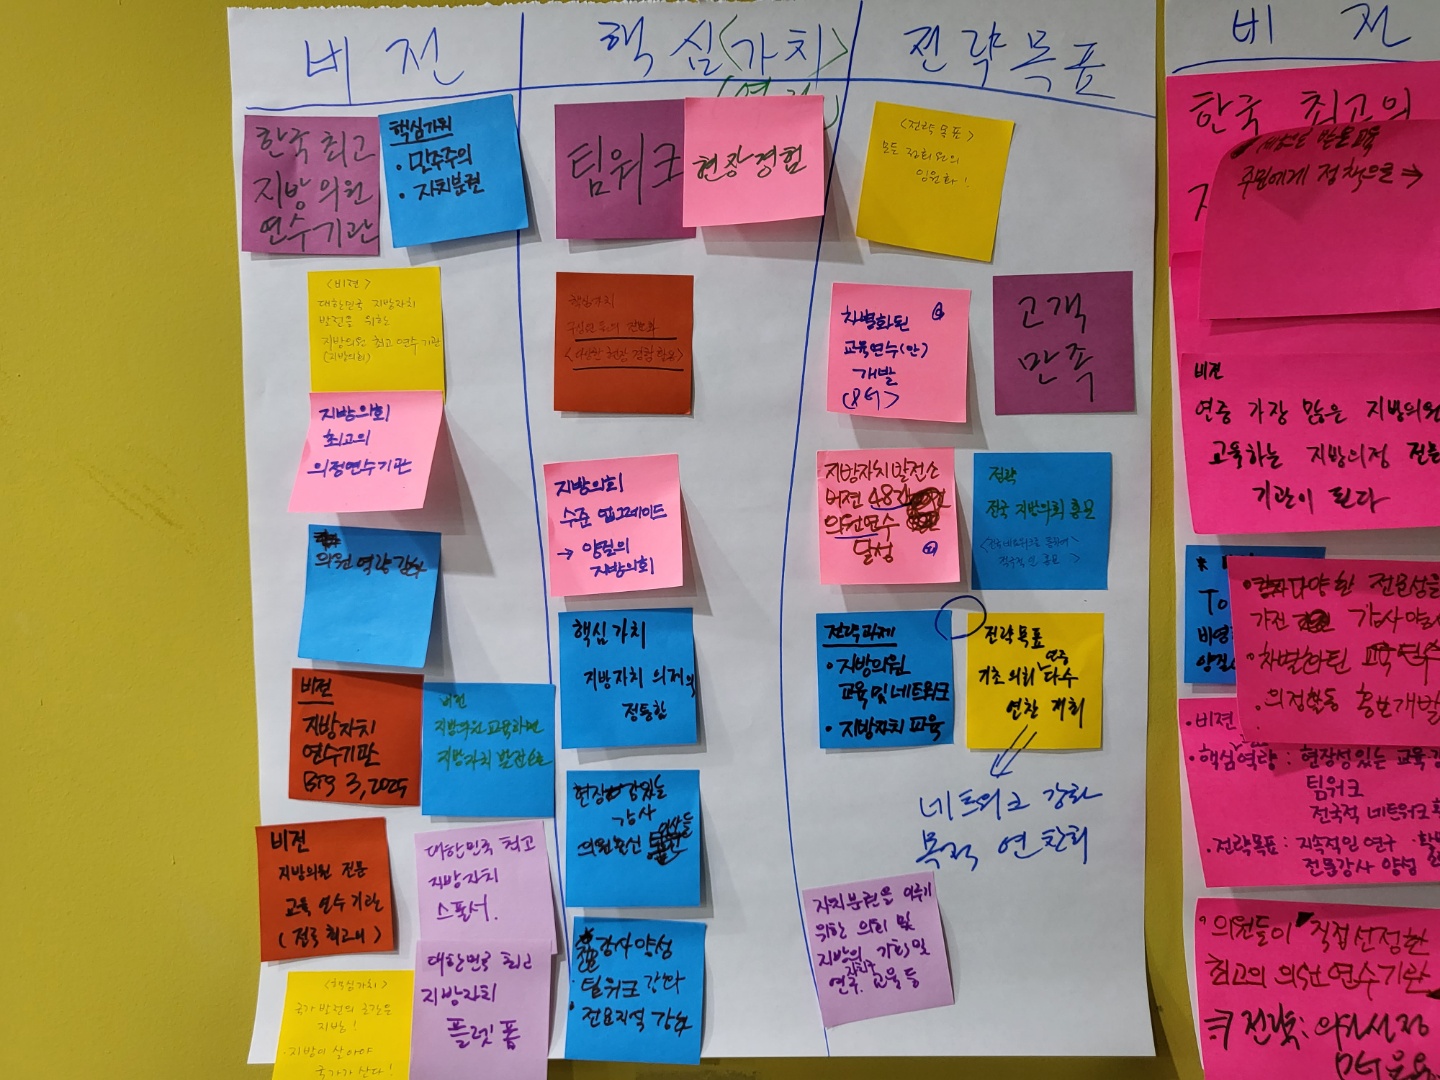 비전
핵심<가치>
전략목표
한국 최고
지방의원
연수기관
핵심가치
• 민주주의
• 자치분권
<비전>
대한민국 지방자치
발전을 위한
지방의원 최고 연수기관
(지방의회)
지방의회
최고의
의정연수기관
의원 역량 강화
비전
지방자치
연수기관
Big 3, 2025
비전
지방의원 교육하면
지방자치 발전
비전
지방의원 전문
교육 연수기관
(전국 최고의)
대한민국 최고
지방자치
스폴서.
대한민국 최고
지방자치
플렛폼
<핵심가치>
국가 발전의 근간은
지방!
· 지방이 살아야
국가가 산다!
팀워크
현장경험
핵심가치
<다양한 현장 경험 활용>
지방의회
수준 업그레이드
→ 양질의
지방의회
핵심가치
지방자치 의제의
정통함
현장 있는
강사
의원출신
강사양성
팀워크 강화
전문지식 강화
<전략목표>
모든 정회원의
임원화!
차별화된
교육연수(안)
개발
고객
만족
지방자치발전소
버전
의원연수
달성
전략
전국 지방의회 홍보
전략과제
• 지방의원
교육 및 네트워크
• 지방자치 교육
전략목표
기초의회 연중 다수
연찬 계획
네트워크 강화
목적 연찬회
자치분권을 이루기
위한 의회 및
지방의 가치 및
연구. 교육 등
비전
한국 최고의
주민에게 정책으로 ⇒
비전
연중 가장 많은 지방의원
교육하는 지방의정 전문
기관이 된다
다양한 전문성을
가진 강사
· 차별화된 교육연수
· 의정활동 홍보개발
· 비전
· 핵심역량 : 현장성있는 교육
팀워크
전국적 네트워크
· 전략목표 : 지속적인 연구
전문강사 양성
의원들이 직접선정한
최고의 의원연수기관